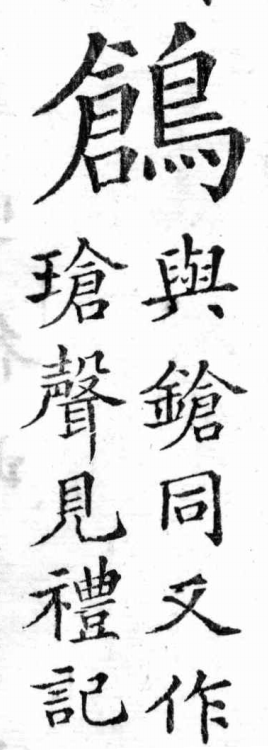 鶬
與鎗同又作
瑲聲見禮記